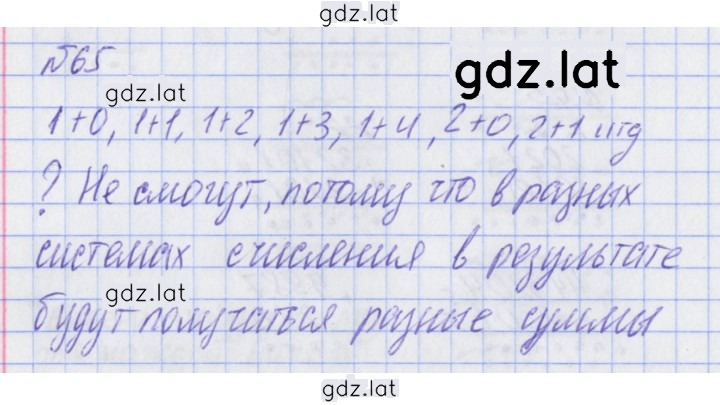 gdz.lat
№65
gdz.lat
gdz.lat
1+0, 1+1, 1+2, 1+3, 1+4, 2+0, 2+1 итд
? Не смогут, потому что в разных
системах счисления в результате
gdz.lat
будут получаться разные суммы
gdz.lat